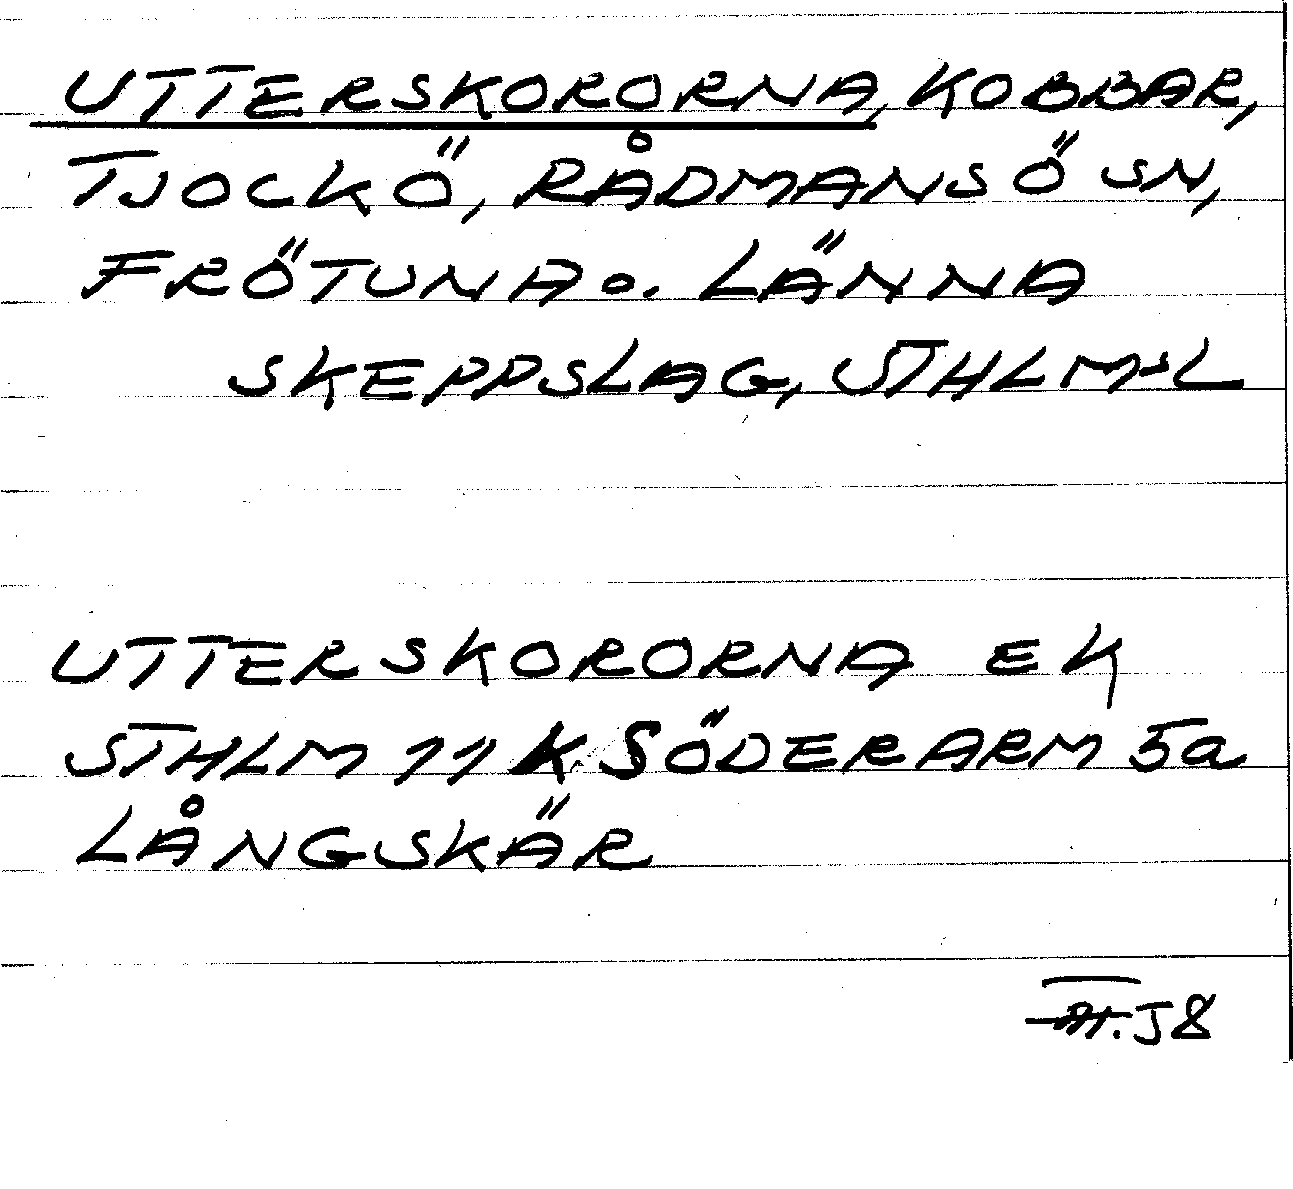 UTTERSKORORNA, KOBBAR,
TJOCKÖ, RÅDMANSÖ SN,
FRÖTUNA o. LÄNNA
SKEPPSLAG, STHLM-L
UTTERSKORORNA EK
STHLM 11 K SÖDERARM 5a
LÅNGSKÄR